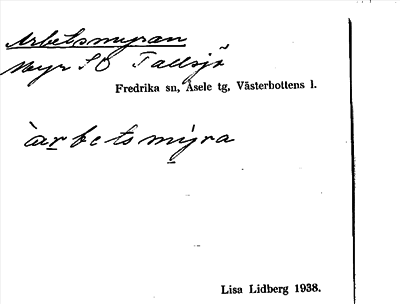 Arbetsmyran
Myr SO Tallsjö
Fredrika sn, Åsele tg, Västerbottens l.
àrbetsmỳra
Lisa Lidberg 1938.